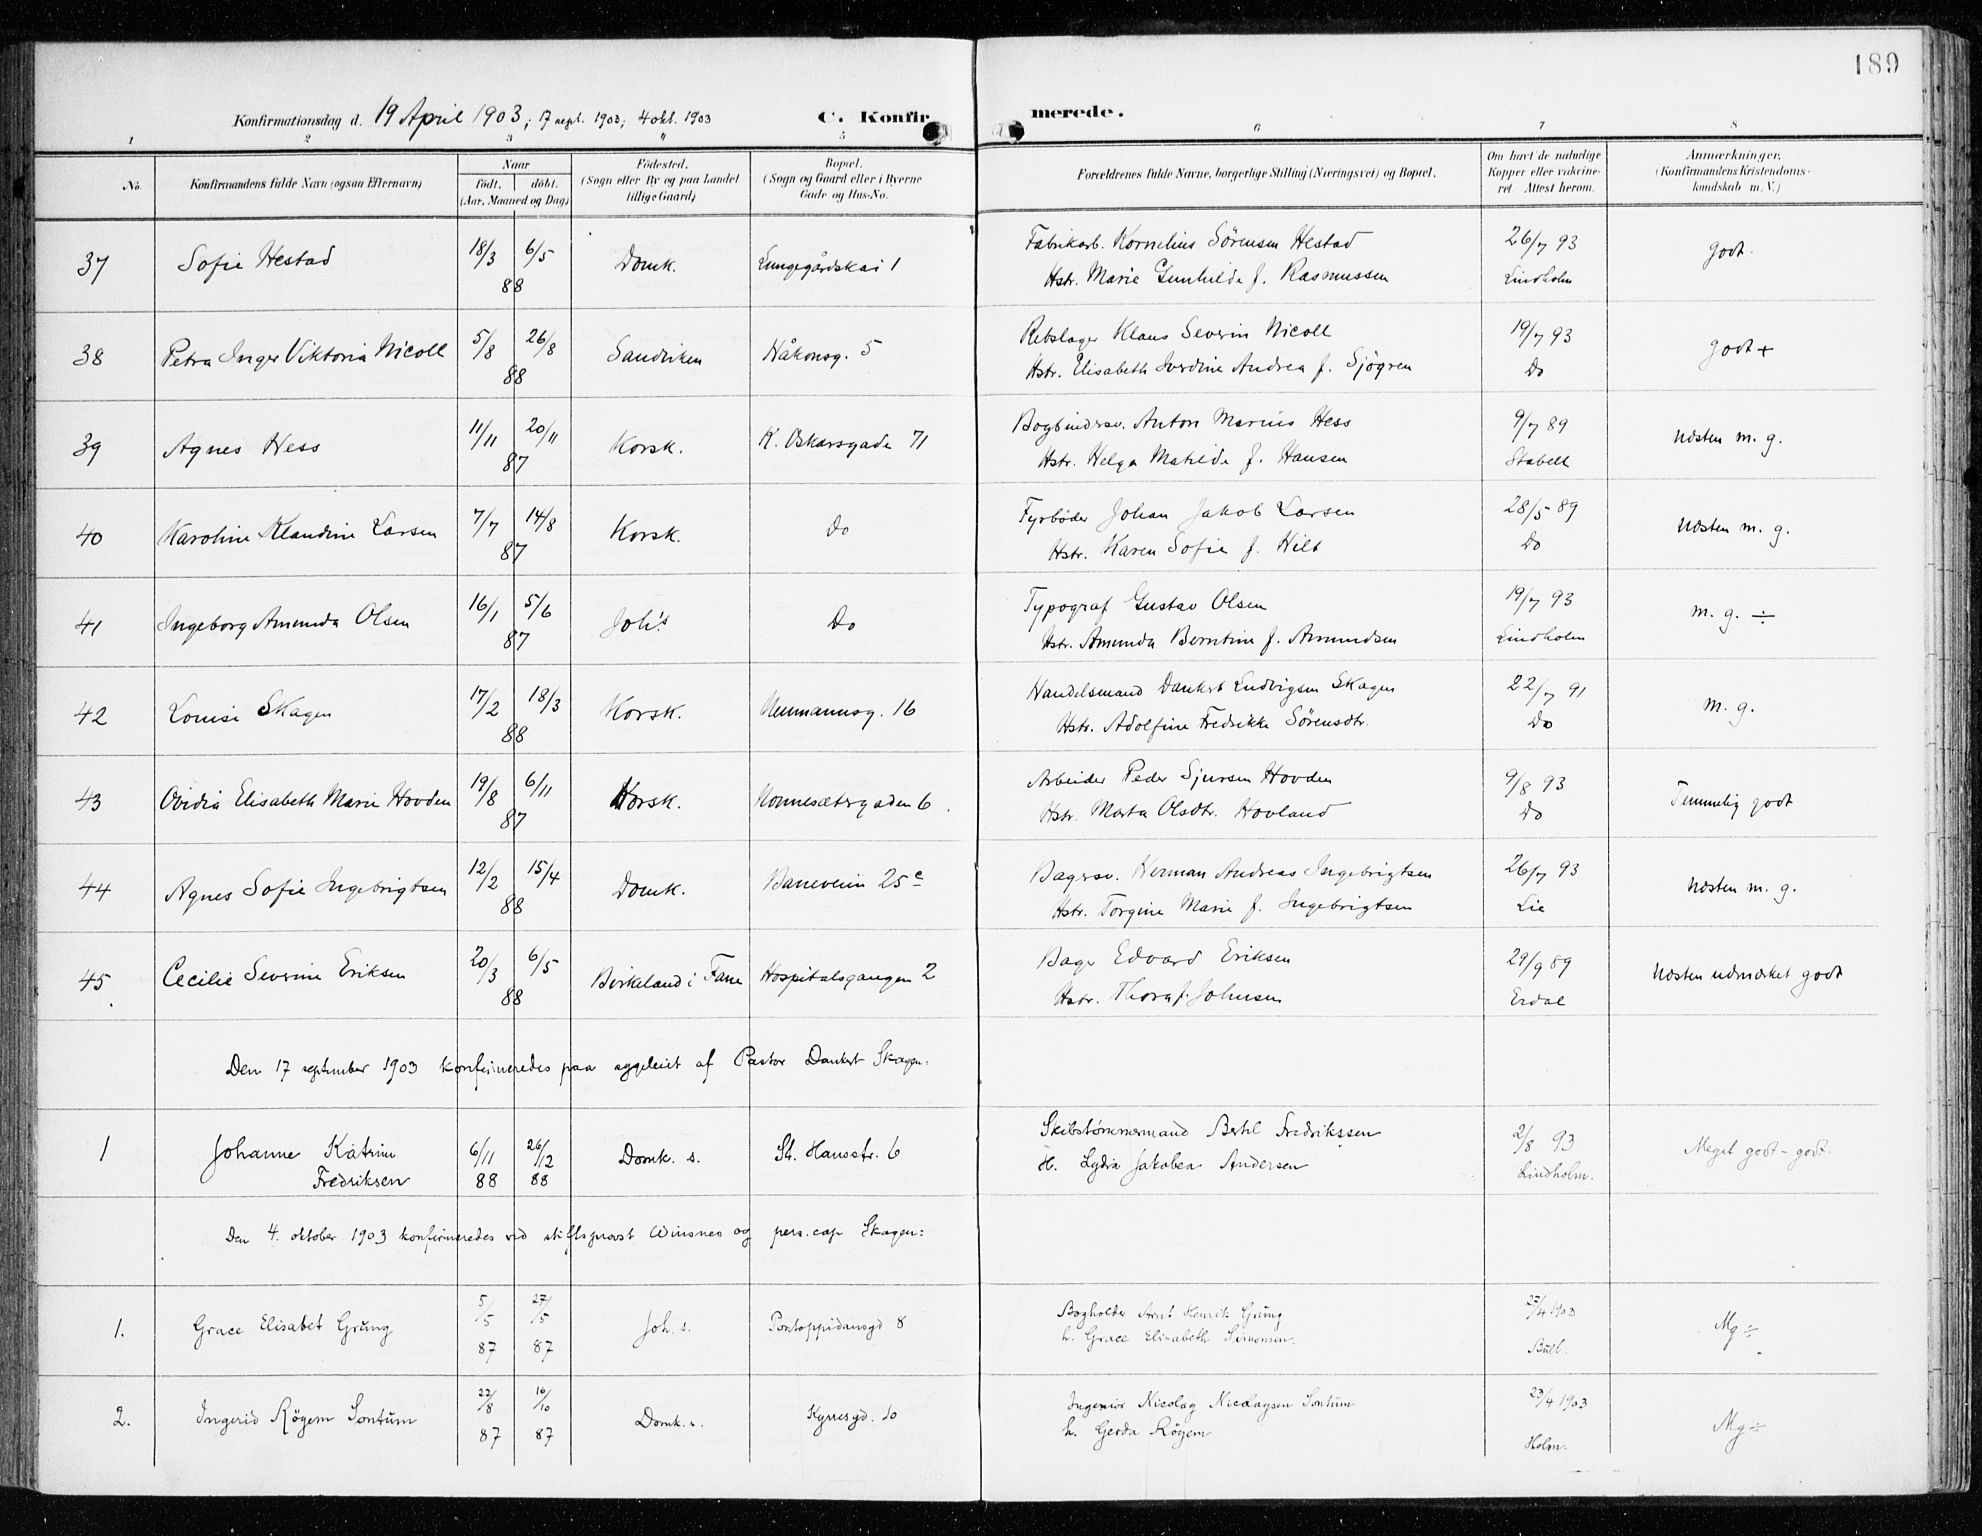 189
Konfirmationsdag d. 19 April 1903; 17 sept. 1903; 4 okt. 1903 C. Konfir merede.
1 2 3 4 5 6 7 8
No. Konfirmandens fulde Navn (ogsaa Efternavn) Naar födt. döbt. (Aar, Maaned og Dag) Födested. (Sogn eller By og paa Landet tillige Gaard) Bopæl. (Sogn og Gaard eller i Byerne Gade og Hus-No. Forældrenes fulde Navne, borgerlige Stilling (Næringsvei) og Bopæl. Om havt de naturlige Kopper eller vakcineret. Attest herom. Anmærkninger. (Konfirmandens Kristendomskundskab m. V.)
37 Sofie Hestad 18/3 6/5 Domk. Lungegårdskai 1 Fabrikarb. Kornelius Sörensen Hestad 26/7 93 godt.
88 Hstr. Marie Gunhilde f. Rasmussen Lindholm
38 Petra Inger Viktoria Nicoll 5/8 26/8 Sandviken Håkonsg. 5 Rebslager Klaus Severin Nicoll 19/7 93 godt +
88 Hstr. Elisabeth Jordine Andrea f. Sjögren Do
39 Agnes Hess 11/11 20/11 Korsk. K. Oskarsgade 71 Bogbindersv. Anton Marius Hess 9/7 89 næsten m. g.
87 Hstr. Helga Matilde f. Hansen Stabell
40 Karoline Klaudine Larsen 7/7 14/8 Korsk. Do Fyrböder Johan Jakob Larsen 28/5 89 næsten m. g.
87 Hstr. Karen Sofie f. Hilt Do
41 Ingeborg Amunda Olsen 16/1 5/6 Joh's Do Typograf Gustav Olsen 19/7 93 m. g. ÷
87 Hstr. Amunda Berntine f. Amundsen Lindholm
42 Louise Skagen 17/2 18/3 Korsk. Neumannsg. 16 Handelsmand Dankert Ludvigsen Skagen 22/7 91 m. g.
88 Hstr. Adolfine Fredrikke Sörensdtr. Do
43 Ovidia Elisabeth Marie Hovden 19/8 6/11 Korsk. Nonnesætergaden 6 Arbeider Peder Sjursen Hovden 9/8 93 Temmelig godt
87 Hstr. Marta Olsdtr. Hovland Do
44 Agnes Sofie Ingebrigtsen 12/2 15/4 Domk. Baneveien 25c Bagersv. Herman Andreas Ingebrigtsen 26/7 93 næsten m. g.
88 Hstr. Torgine Marie f. Ingebrigtsen Lie
45 Cecilie Severine Eriksen 20/3 6/5 Birkeland i Fane Hospitalsgangen 2 Bager Edvard Eriksen 29/9 89 næsten udmærket godt
88 Hstr. Thora f. Johnsen Erdal
Den 17 september 1903 konfirmeredes paa sygeleiet af Pastor Dankert Skagen:
1 Johanne Katrine Fredriksen 6/11 88 26/12 88 Domk. s. St. Hansstr. 6 Skibstömmermand Bertel Fredrikssen 2/8 93 Meget godt - godt.
H. Lydia Jakobea Andersen Lindholm.
Den 4. oktober 1903 konfirmeredes ved stiftsprovst Winsnes og pers. cap Skagen:
1. Grace Elisabet Grüng 5/5 87 27/5 87 Joh. s. Pontoppidansgd 8 Bogholder Arnt Henrik Grüng 23/4 1903 Mg ÷
h. Grace Elisabeth Simonsen. Bull.
2. Ingerid Röyem Sontüm 22/8 87 16/10 87 Domk. s. Kyrresgd. 10 Ingeniör Nicolay Nicolaysen Sontüm 23/4 1903 Mg ÷
h. Gerda Röyem Holm.